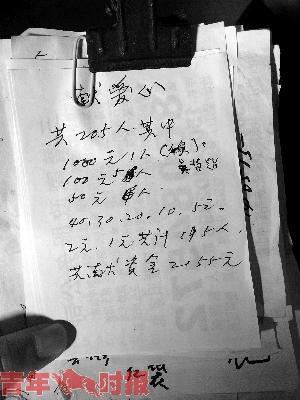 献爱心
共205人.其中
1000元1人(
100元5人
50元 人.
40.30.20.10.5元.
2元.1元共计195人.
共献资金2055元
青年时报